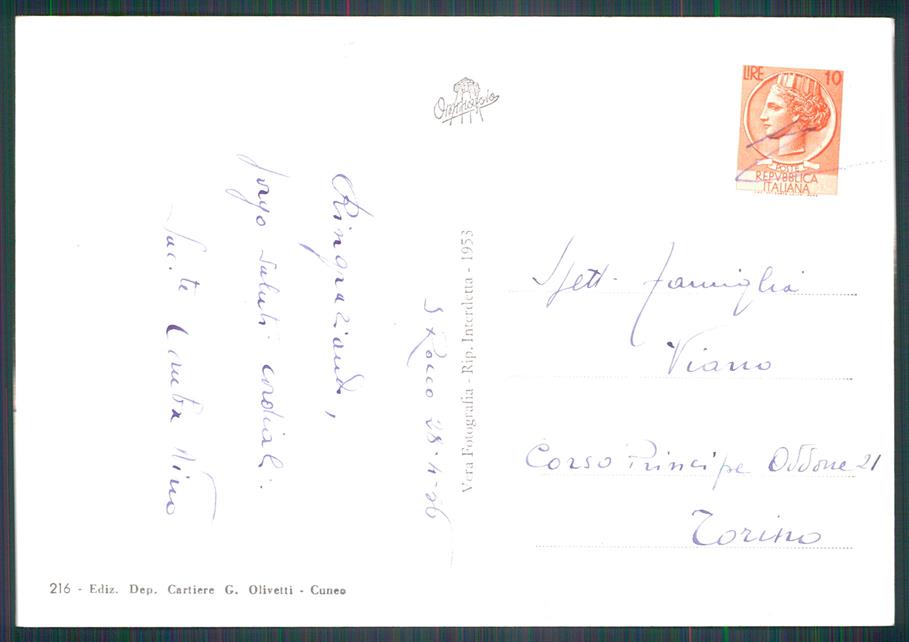 LIRE 10
POSTE
REPVBBLICA
ITALIANA
S Rocco 28-4-56
Ringraziando,
porgo saluti cordiali.
Comba Nino
Vera Fotografia - Rip. Interdetta - 1953
Spett. famiglia
Viano
Corso Principe Oddone 21
Torino
216 - Ediz. Dep. Cartiere G. Olivetti - Cuneo